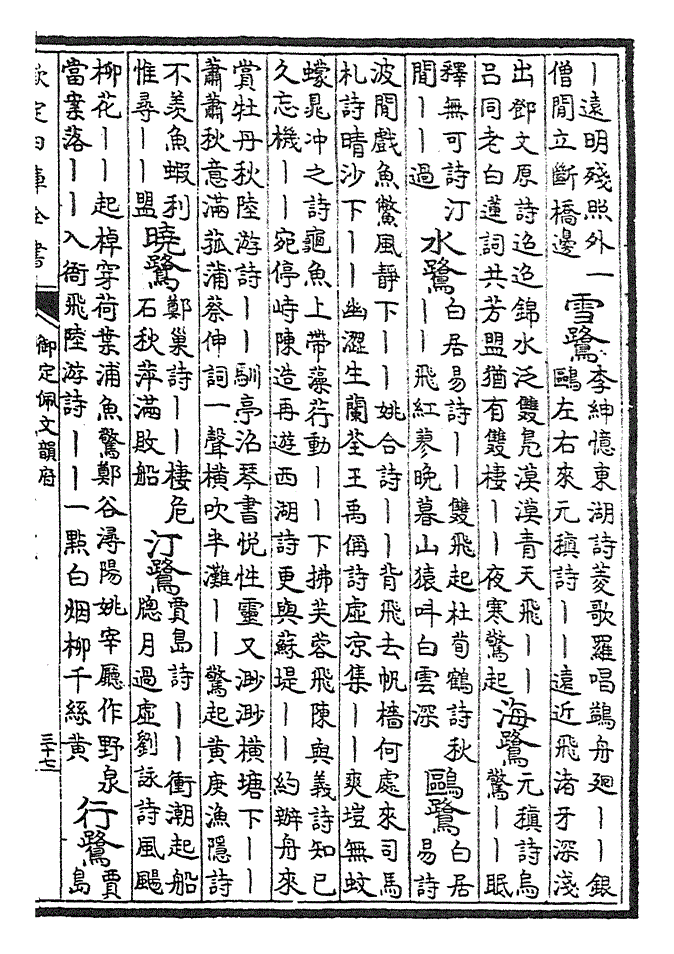 丨遠明殘照外一
僧閒立斷橋邊
雪鷺
李紳憶東湖詩菱歌羅唱鷁舟廻丨丨銀
鷗左右來元稹詩丨丨遠近飛渚牙深淺
出鄧文原詩迢迢錦水泛雙鳧漠漠青天飛丨丨
呂同老白蓮詞共芳盟猶有雙棲丨丨夜寒驚起
海鷺
元稹詩烏
驚丨丨眠
釋無可詩汀
閒丨丨過
水鷺
白居易詩丨丨雙飛起杜荀鶴詩秋
丨丨飛紅蓼晚暮山猿叫白雲深
鷗鷺
白居
易詩
波閒戲魚鼈風靜下丨丨姚合詩丨丨背飛去帆檣何處來司馬
札詩晴沙下丨丨幽澀生蘭荃王禹偁詩虛涼集丨丨爽塏無蚊
蠓晁冲之詩龜魚上帶藻荇動丨丨下拂芙蓉飛陳與義詩知已
久忘機丨丨宛停峙陳造再遊西湖詩更與蘇堤丨丨約辦舟來
賞牡丹秋陸游詩丨丨馴亭沼琴書悅性靈又渺渺橫塘下丨丨
蕭蕭秋意滿菰蒲蔡伸詞一聲橫吹半灘丨丨驚起黃庚漁隱詩
不羨魚蝦利
惟尋丨丨盟
曉鷺
鄭巢詩丨丨棲危
石秋萍滿敗船
汀鷺
賈島詩丨丨衝潮起船
牕月過虛劉詠詩風颺
柳花丨丨起棹穿荷葉浦魚驚鄭谷潯陽姚宰廳作野泉
當案落丨丨入衙飛陸游詩丨丨一點白烟柳千絲黃
行鷺
賈
島
欽定四庫全書
御定佩文韻府
三十七